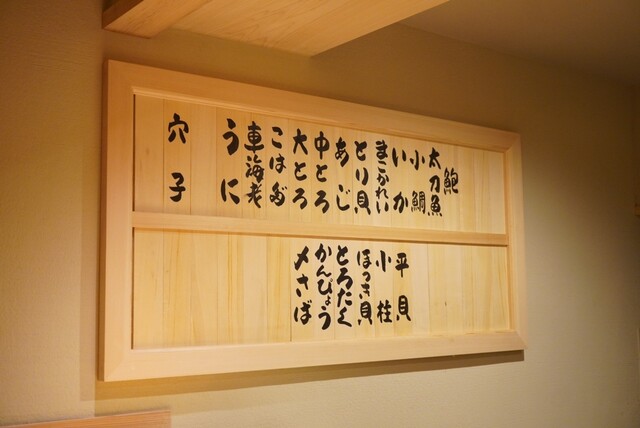 鮑
太刀魚
小鯛
いか
まこがれい
とり貝
あじ
中とろ
大とろ
こはだ
車海老
うに
穴子
平貝
小柱
ほっき貝
とろたく
かんぴょう
〆さば